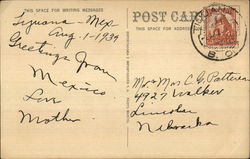 THIS SPACE FOR WRITING MESSAGES
POST CARD
THIS SPACE FOR ADDRESS
Tijuana - Mex
Aug - 1 - 1939
Greetings from
Mexico
Love
Mother
Mr & Mrs C. G. Patterson
4927 Walker
Lincoln
Nebraska